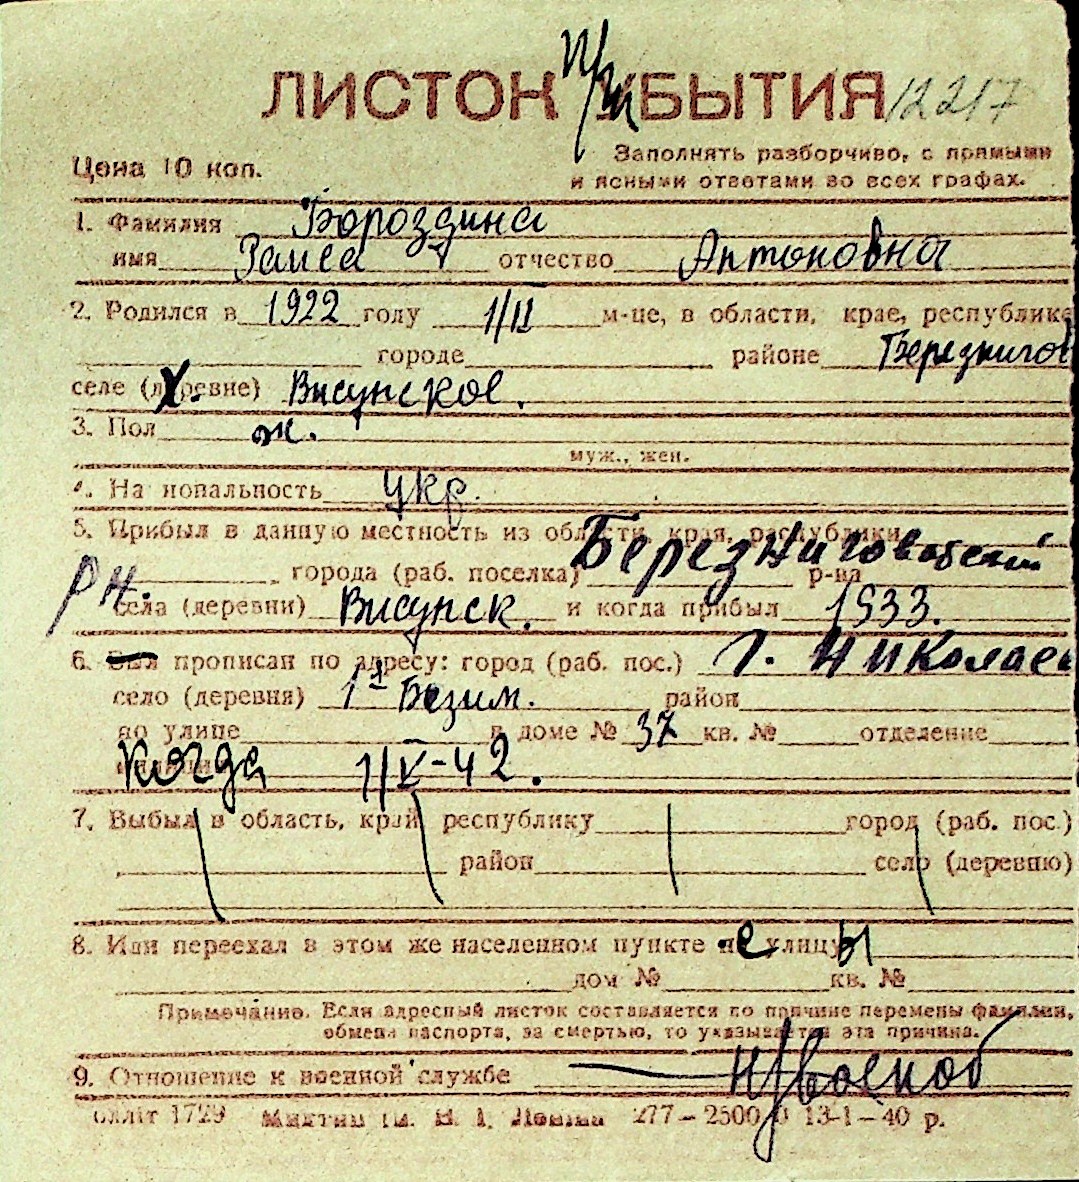 ЛИСТОК ПРИБЫТИЯ 12217
Цена 10 коп. Заполнять разборчиво, с прямыми
и ясными ответами во всех графах.
1. Фамилия Бороздина
имя Раиса отчество Антоновна
2. Родился в 1922 году 1/II м-це, в области, крае, республике
городе районе Березнигов
селе (деревне) Висунское.
3. Пол ж.
муж., жен.
4. Национальность укр.
5. Прибыл в данную местность из области, края, республики
города (раб. поселка) Березниговатский р-на
рн. села (деревни) Висунск. и когда прибыл 1933.
6. Был прописан по адресу: город (раб. пос.) г. Николаев
село (деревня) 1ая Безим. район
по улице в доме № 37 кв. № отделение
когда 1/V-42.
7. Выбыл в область, край республику город (раб. пос.)
район село (деревню)
8. Или переехал в этом же населенном пункте с улицы
дом № кв. №
Примечание. Если адресный листок составляется по причине перемены фамилии,
обмена паспорта, за смертью, то указывается эта причина.
9. Отношение к военной службе н/военооб
1729 277–2500 13-1-40 р.